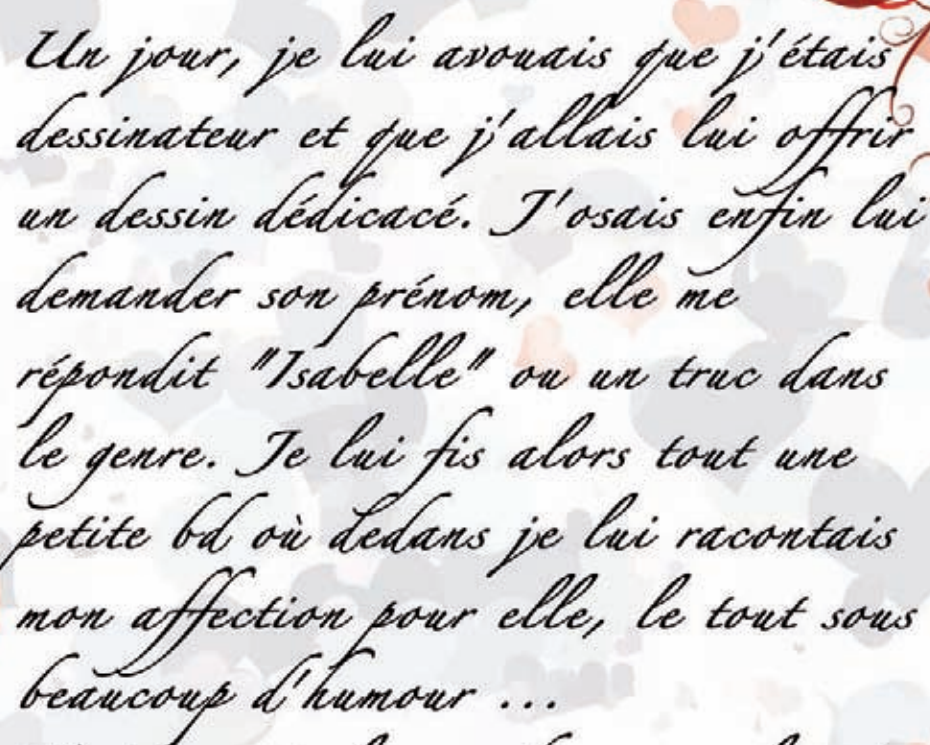 Un jour, je lui avouais que j'étais
dessinateur et que j'allais lui offrir
un dessin dédicacé. J'osais enfin lui
demander son prénom, elle me
répondit "Isabelle" ou un truc dans
le genre. Je lui fis alors tout une
petite bd où dedans je lui racontais
mon affection pour elle, le tout sous
beaucoup d'humour ...